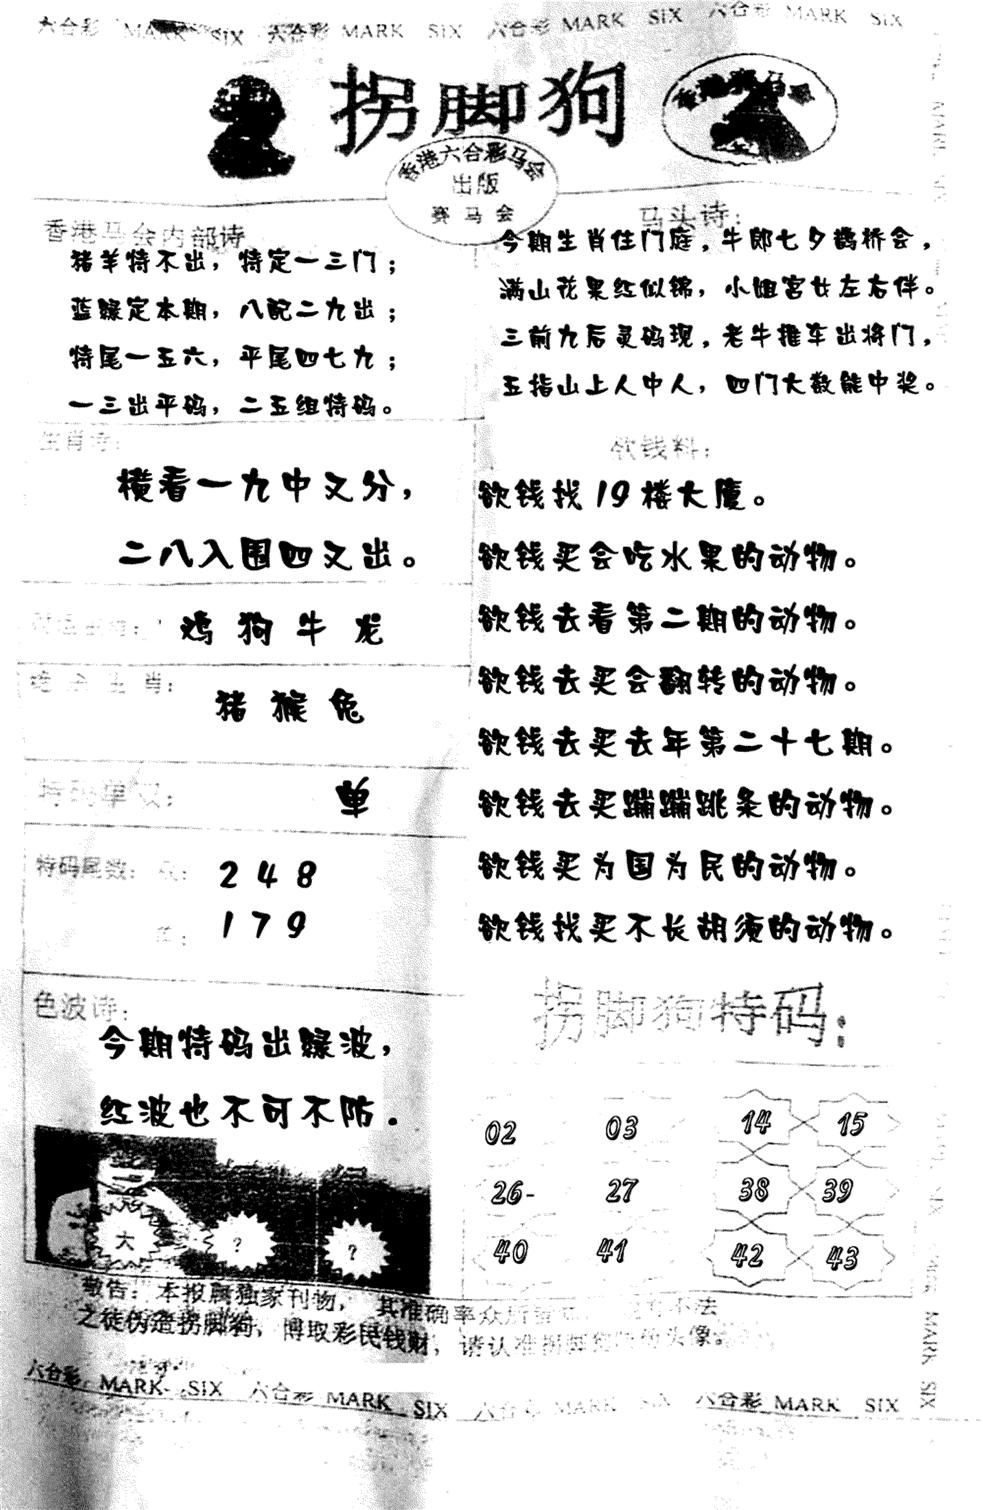 六合彩 MARK SIX 六合彩 MARK SIX 六合彩 MARK SIX 六合彩 MARK SIX
拐脚狗
香港赛马会
香港六合彩马会
出版
赛马会
香港马会内部诗
猪羊特不出，特定一三门；
蓝绿定本期，八配二九出；
特尾一五六，平尾四七九；
一三出平码，二五组特码。
马头诗：
今期生肖住门庭，牛郎七夕鹊桥会，
满山花果红似锦，小姐宫女左右伴。
三前九后灵码现，老牛推车出将门，
五指山上人中人，四门大数能中奖。
生肖诗：
横看一九中又分，
二八入围四又出。
鸡狗牛龙
绝杀生肖：
猪猴兔
特码单双：
单
特码尾数：双：248
单：179
色波诗：
今期特码出绿波，
红波也不可不防.
大 ？ ？
欲钱料：
欲钱找19楼大厦。
欲钱买会吃水果的动物。
欲钱去看第二期的动物。
欲钱去买会翻转的动物。
欲钱去买去年第二十七期。
欲钱去买蹦蹦跳条的动物。
欲钱买为国为民的动物。
欲钱找买不长胡须的动物。
拐脚狗特码：
02 03 14 15
26- 27 38 39
40 41 42 43
敬告：本报属独家刊物，其准确率众所
不法
之徒伪造拐脚狗，博取彩民钱财，请认准拐脚狗
头像。
六合彩 MARK SIX 六合彩 MARK SIX 六合彩 MARK SIX 六合彩 MARK SIX
MARK SIX